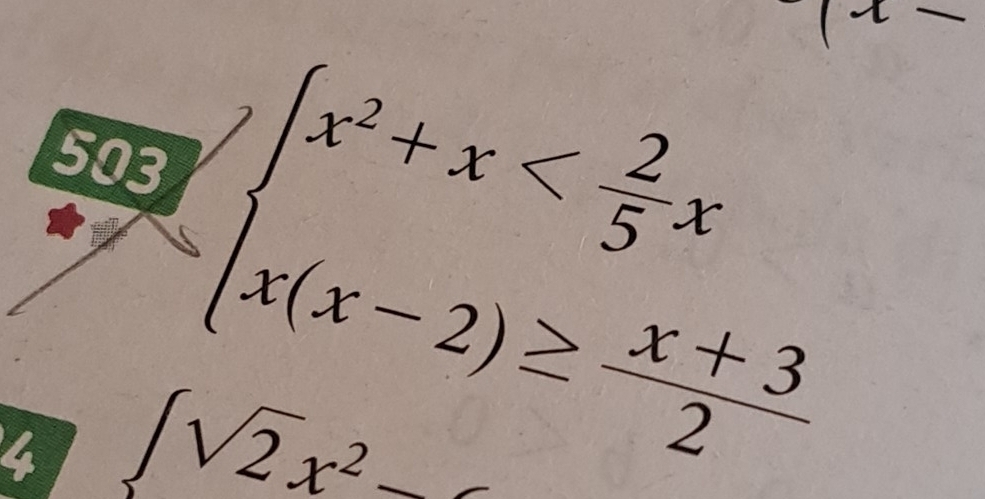 (x −
503
x² + x < 2/5 x
x(x − 2) ≥ (x + 3)/2
4
√2 x² −